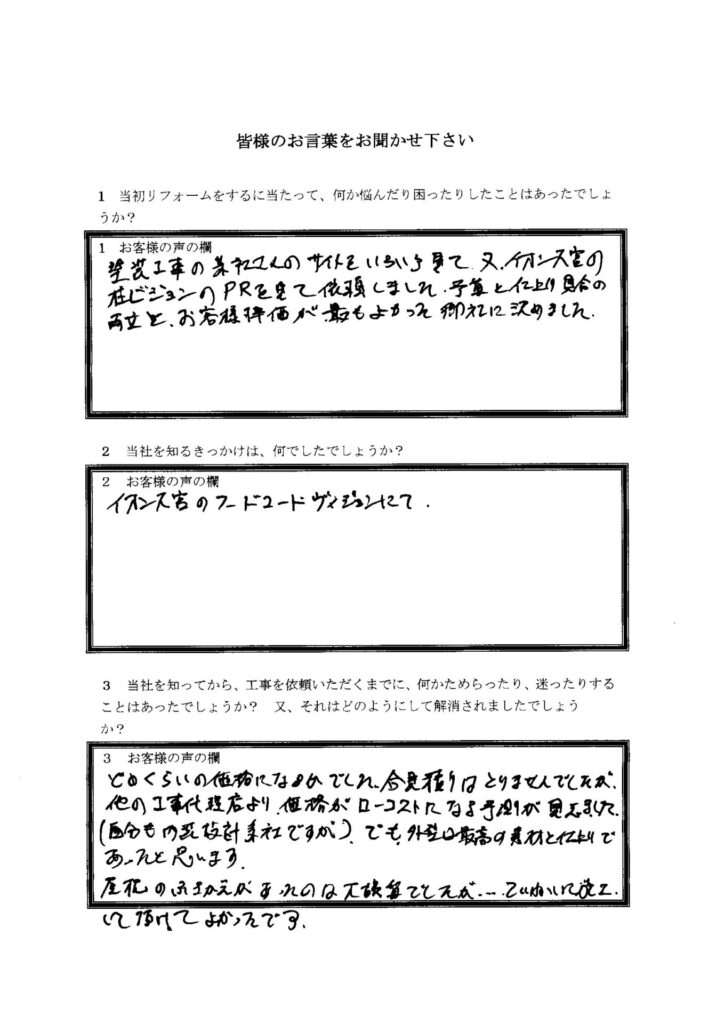 皆様のお言葉をお聞かせ下さい
1 当初リフォームをするに当たって、何か悩んだり困ったりしたことはあったでしょ
うか?
1 お客様の声の欄
塗装工事の業社さんのサイトをいろいろ見て、又、イオン大宮の
柱ビジョンのPRを見て依頼しました。予算と仕上り具合の
両立と、お客様評価が最もよかった御社に決めました。
2 当社を知るきっかけは、何でしたでしょうか?
2 お客様の声の欄
イオン大宮のフードコードヴィジョンにて.
3 当社を知ってから、工事を依頼いただくまでに、何かためらったり、迷ったりする
ことはあったでしょうか? 又、それはどのようにして解消されましたでしょう
か?
3 お客様の声の欄
どのくらいの価格になるかでした。合見積りはとりませんでしたが、
他の工事代理店より、価格がローコストになる予測が見えました。
(自分も内装設計業社ですが)、でも、外壁は最高の素材と仕上りで
あったと思います。
屋根のふきかえがまれのは大誤算でしたが…
して頂けてよかったです。